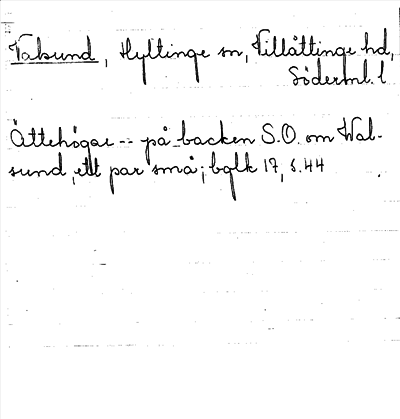 Valsund, Hyltinge sn, Villåttinge hd,
Söderml. l
Ättehögar -- på backen S.O. om Wal-
sund, ett par små; bglk 17, s. 44